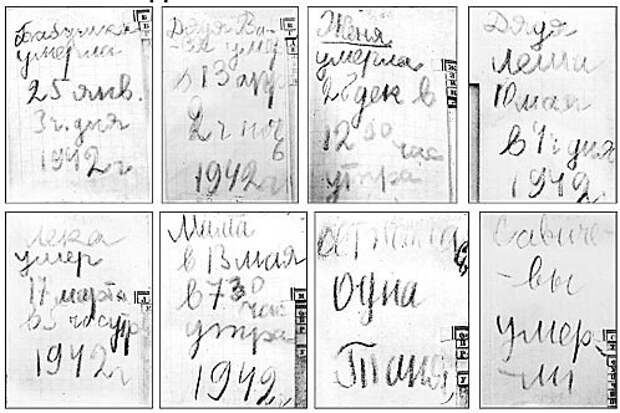 Бабушка
умерла
25 янв.
3 ч. дня
1942 г
Дядя Ва-
-ся умер
в 13 апр
2 ч ноч
1942 г
Женя
умерла
28 дек в
12 00 час
утра
Дядя
Леша
10 мая
в 4 ч дня
1942
Лека
умер
17 марта
в 5 час утр
1942 г
Мама
в 13 мая
в 7 30
час
утра
1942 г
Осталась
одна
Таня
Савиче-
-вы
умер-
-ли